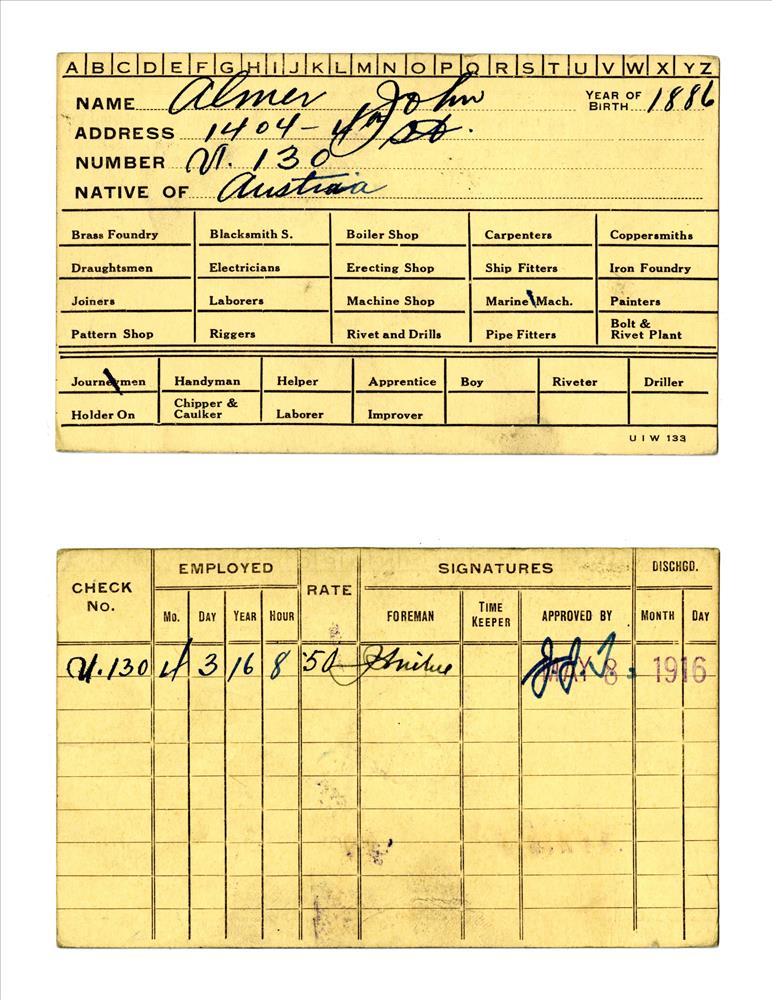 A B C D E F G H I J K L M N O P Q R S T U V W X Y Z
NAME Almer John YEAR OF BIRTH 1886
ADDRESS 1404 - 4th St.
NUMBER V. 130
NATIVE OF Austria
Brass Foundry Blacksmith S. Boiler Shop Carpenters Coppersmiths
Draughtsmen Electricians Erecting Shop Ship Fitters Iron Foundry
Joiners Laborers Machine Shop Marine Mach. Painters
Pattern Shop Riggers Rivet and Drills Pipe Fitters Bolt & Rivet Plant
Journeymen Handyman Helper Apprentice Boy Riveter Driller
Holder On Chipper & Caulker Laborer Improver
U I W 133
CHECK No. EMPLOYED RATE SIGNATURES DISCHGD.
Mo. DAY YEAR HOUR FOREMAN TIME KEEPER APPROVED BY MONTH DAY
V. 130 4 3 16 8 50 MAY 8 1916